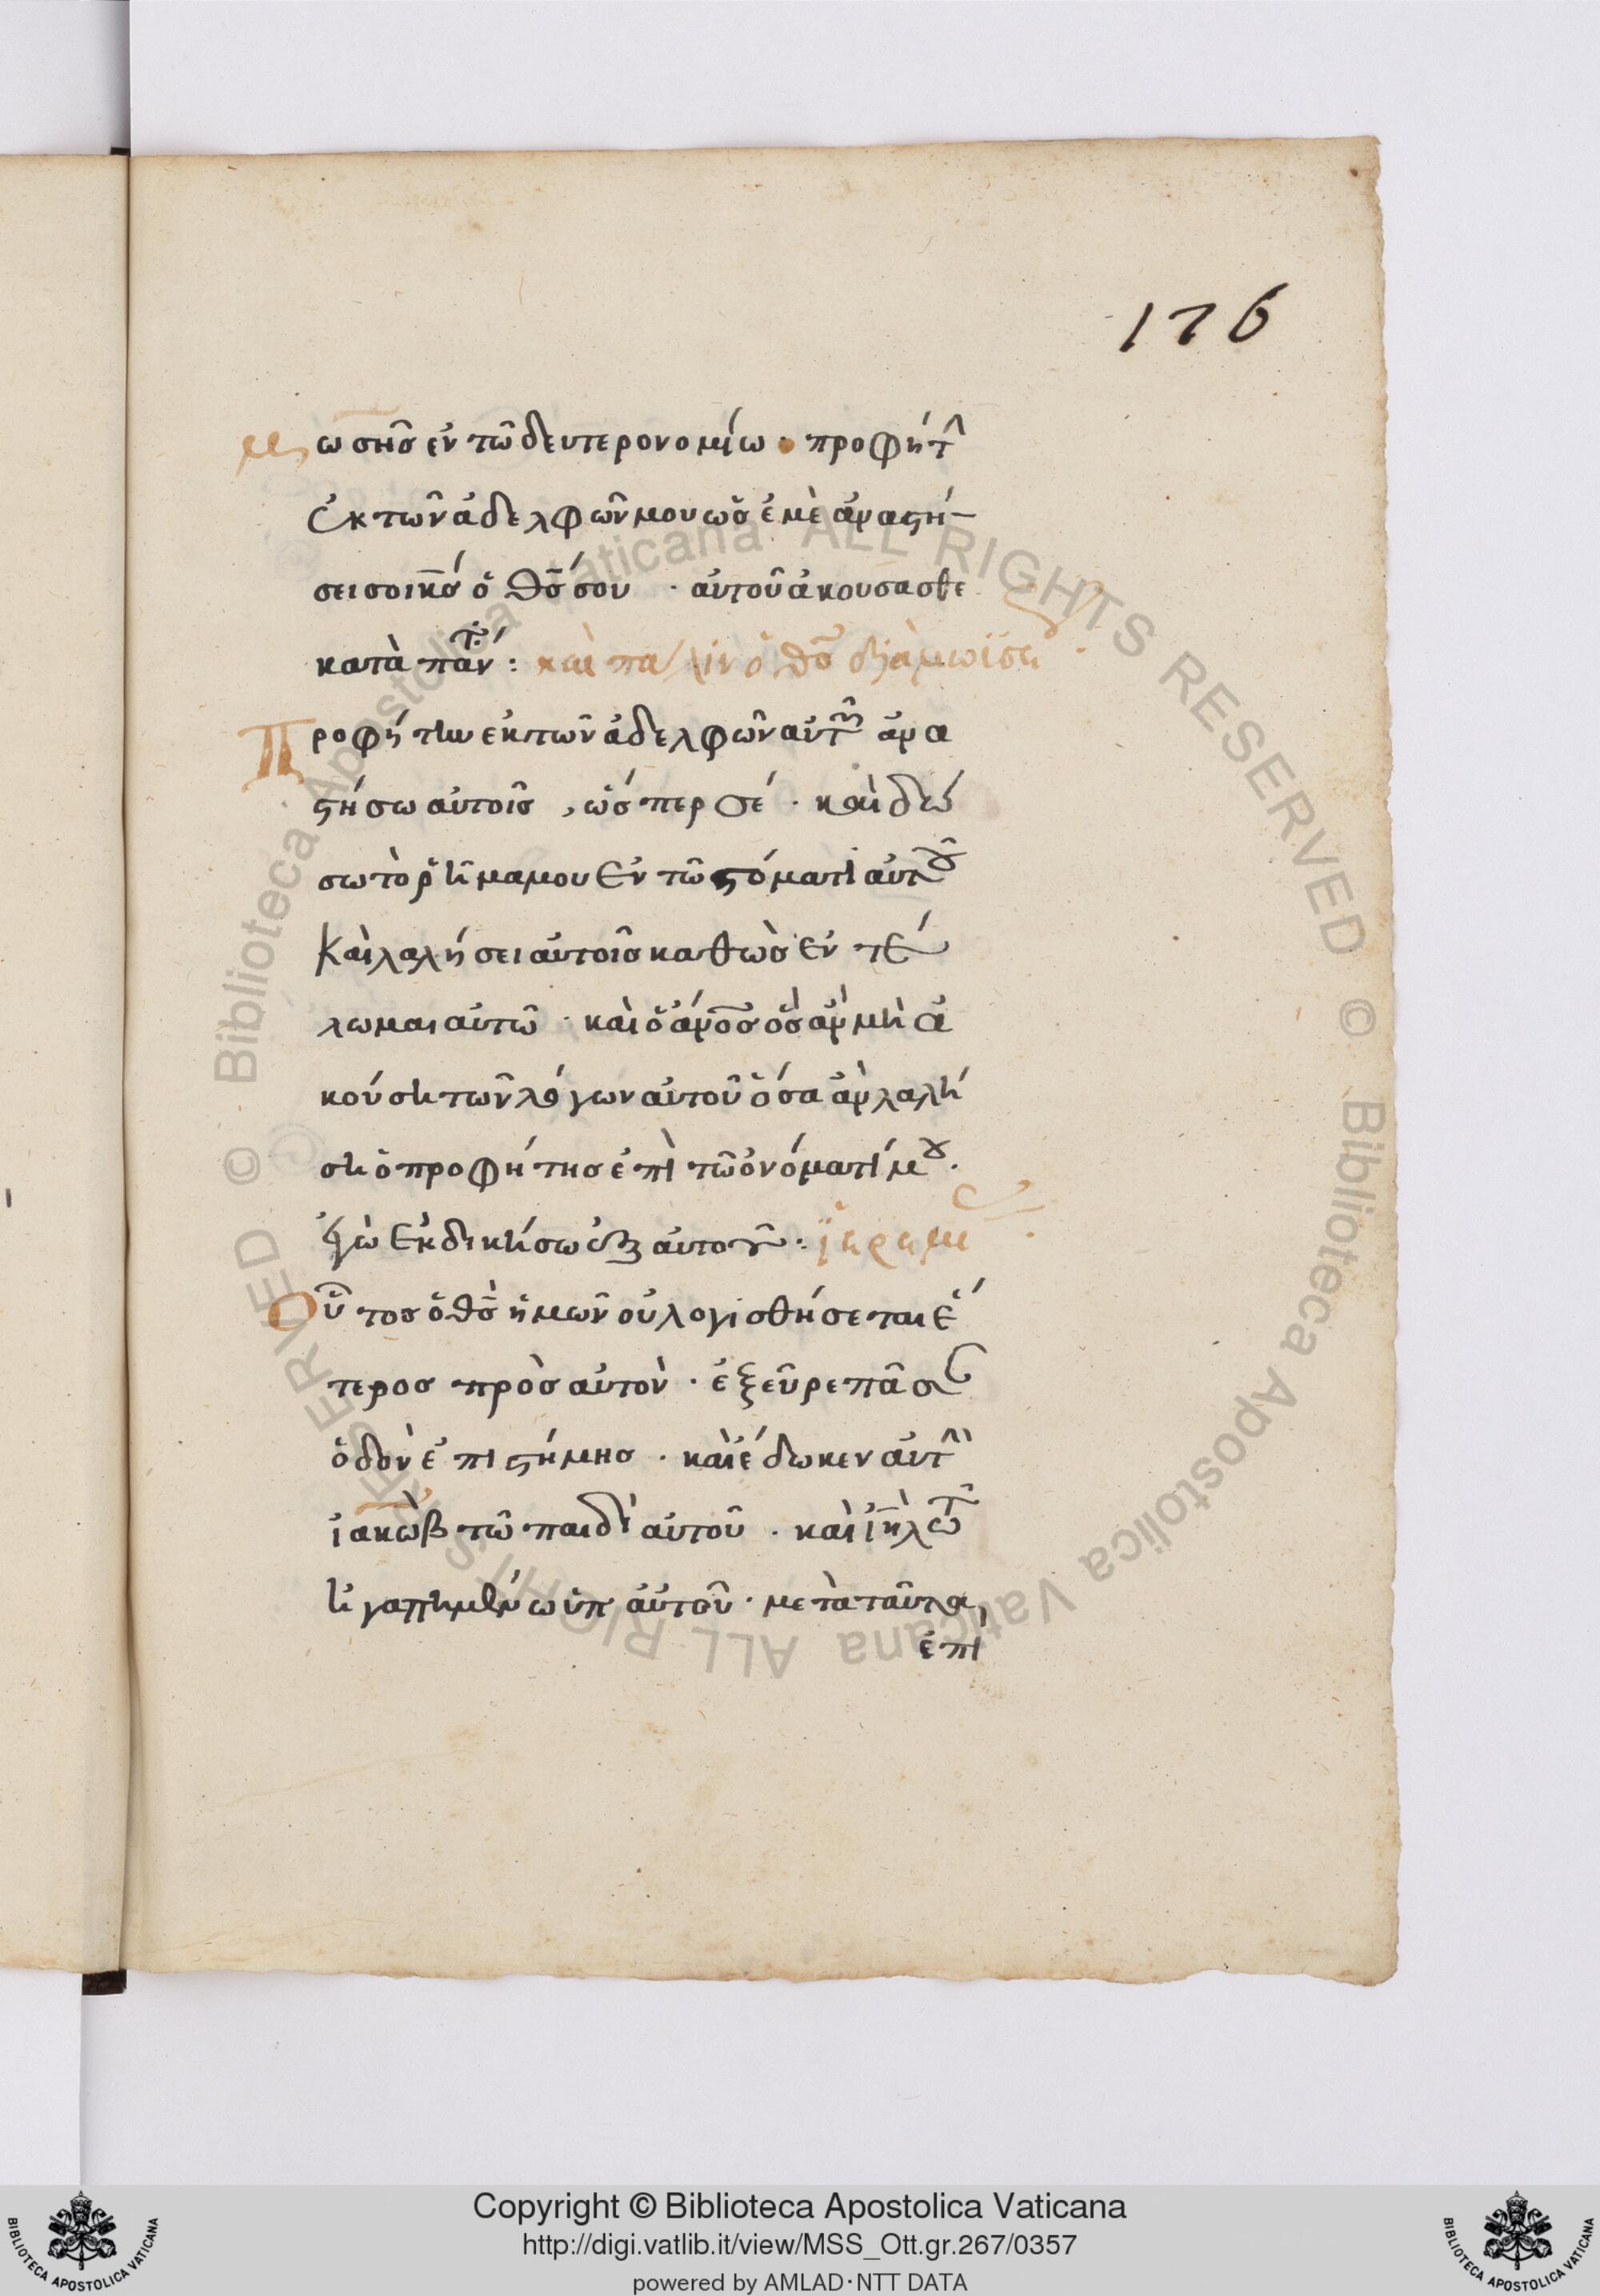 176
Μωσῆς ἐν τῶ δευτερονομίω · προφήτ
ἐκ τῶν ἀδελφῶν μου ὡς ἐμὲ ἀναστή
σει σοι κς ὁ θς σου · αὐτοῦ ἀκούσασθε
κατὰ πάντ : καὶ πάλιν ὁ θς διὰ μωϊσέ
Προφήτην ἐκ τῶν ἀδελφῶν αὐτῶν ἀνα
στήσω αὐτοῖς , ὥσπερ σέ · καὶ δώ
σω τὸ ῥῆμα μου ἐν τῶ στόματι αὐτοῦ
καὶ λαλήσει αὐτοῖς καθὼς ἐν τέ
λωμαι αὐτῶ · καὶ ὁ ἀνος ὃς ἂν μὴ ἀ
κούση τῶν λόγων αὐτοῦ ὅσα ἂν λαλή
ση ὁ προφήτης ἐπὶ τῶ ὀνόματί μου ·
ἐγὼ ἐκδικήσω ἐξ αὐτοῦ : ἱερεμί
Οὗτος ὁ θς ἡμῶν οὐ λογισθήσεται ἕ
τερος πρὸς αὐτὸν · ἐξεῦρε πᾶσαν
ὁδὸν ἐπιστήμης · καὶ ἔδωκεν αὐτὴν
ἰακὼβ τῶ παιδὶ αὐτοῦ · καὶ ιηλ τῶ
ἠγαπημένω ὑπ αὐτοῦ · μετὰ ταῦτα,
ἐπὶ
Copyright © Biblioteca Apostolica Vaticana
http://digi.vatlib.it/view/MSS_Ott.gr.267/0357
powered by AMLAD·NTT DATA
BIBLIOTECA APOSTOLICA VATICANA
BIBLIOTECA APOSTOLICA VATICANA
© Biblioteca Apostolica Vaticana ALL RIGHTS RESERVED © Biblioteca Apostolica Vaticana ALL RIGHTS RESERVED